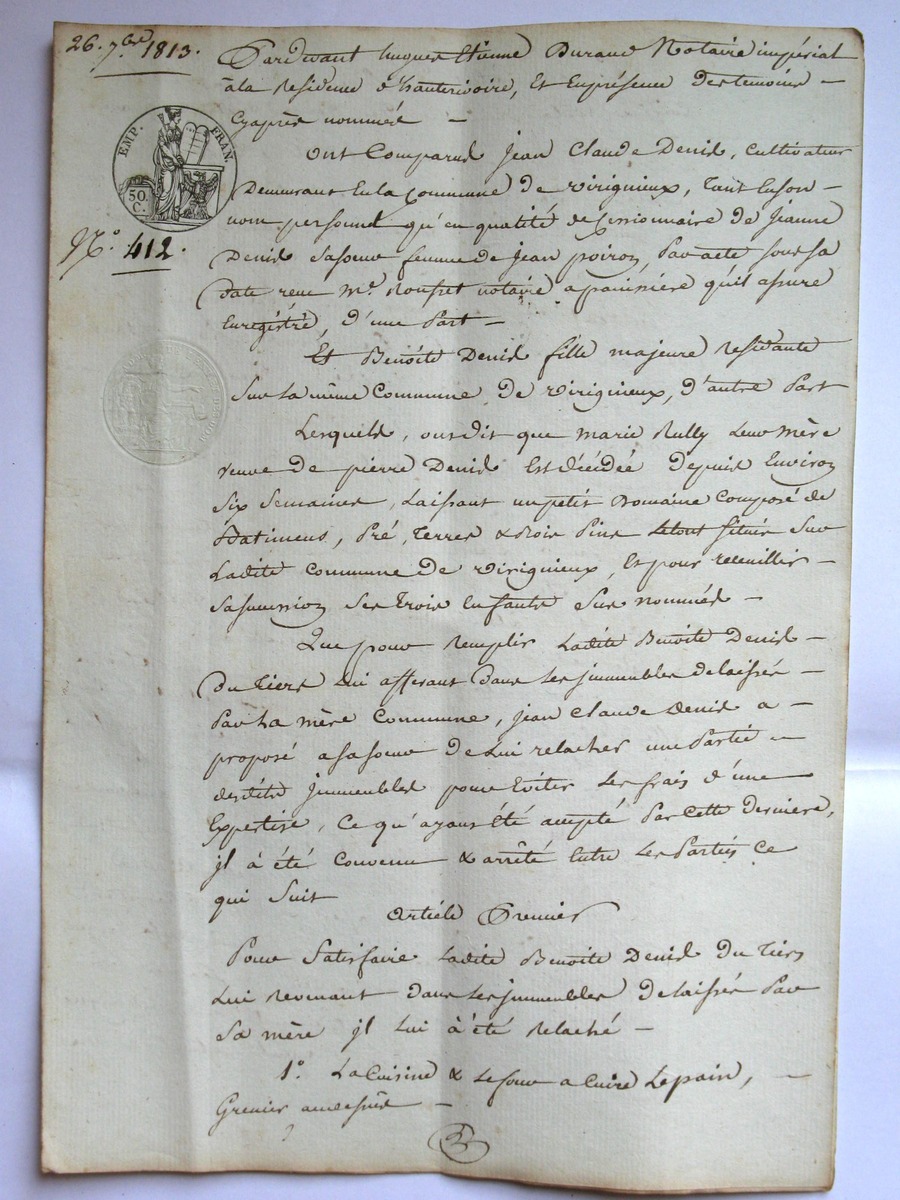 26. 7.bre 1813.
Pardevant Etienne Durand Notaire impérial
à la Residence d'hauterivoire, Et En présence Des temoins –
Cy après nommés –
EMP. FRAN.
50. C.
N.° 412.
ont Comparus Jean Claude Denis, Cultivateur
Demeurant En la Commune de Virignieux, tant En son –
nom personnel qu'en qualité de Cessionnaire de Jeanne
Denis Sa soeur femme de Jean poiron, Par acte sous sa
Date reçu M.e notaire a panissière qu'il assure
Enregistré, d'une Part –
Et Benoite Denis fille majeure Residante
Sur la même Commune de Virignieux, d'autre Part
Lesquels, ont dit que marie Rully Leur mère
veuve de pierre Denis Est décédée depuis Environ
Six Semaines, Laissant un petit Domaine Composé de
Batimens, Pré, Terres & Bois Pins le tout Situés Sur
Ladite Commune de Virignieux, Et pour recueillir –
Sa succession Ses Trois Enfants Sus nommés –
Que pour Remplir Ladite Benoite Denis –
Du tiers Lui afferant Dans les jmmeubles delaissés –
Par La mère Commune, Jean Claude Denis a –
proposé a Sa soeur de Lui relacher une Partie –
desdits Jmmeubles pour Eviter Les frais d'une
Expertise, Ce qu'ayant Eté accepté Par Cette Derniere,
jl à été Convenu & arrêté Entre Les Parties Ce
qui Suit
Article Premier
Pour Satisfaire Ladite Benoite Denis Du tiers
Lui Revenant dans Les jmmeubles delaissés Par
Sa mère jl Lui à été Relaché –
1.° La Cuisine & Le four a Cuire Le pain, –
Grenier au dessus –